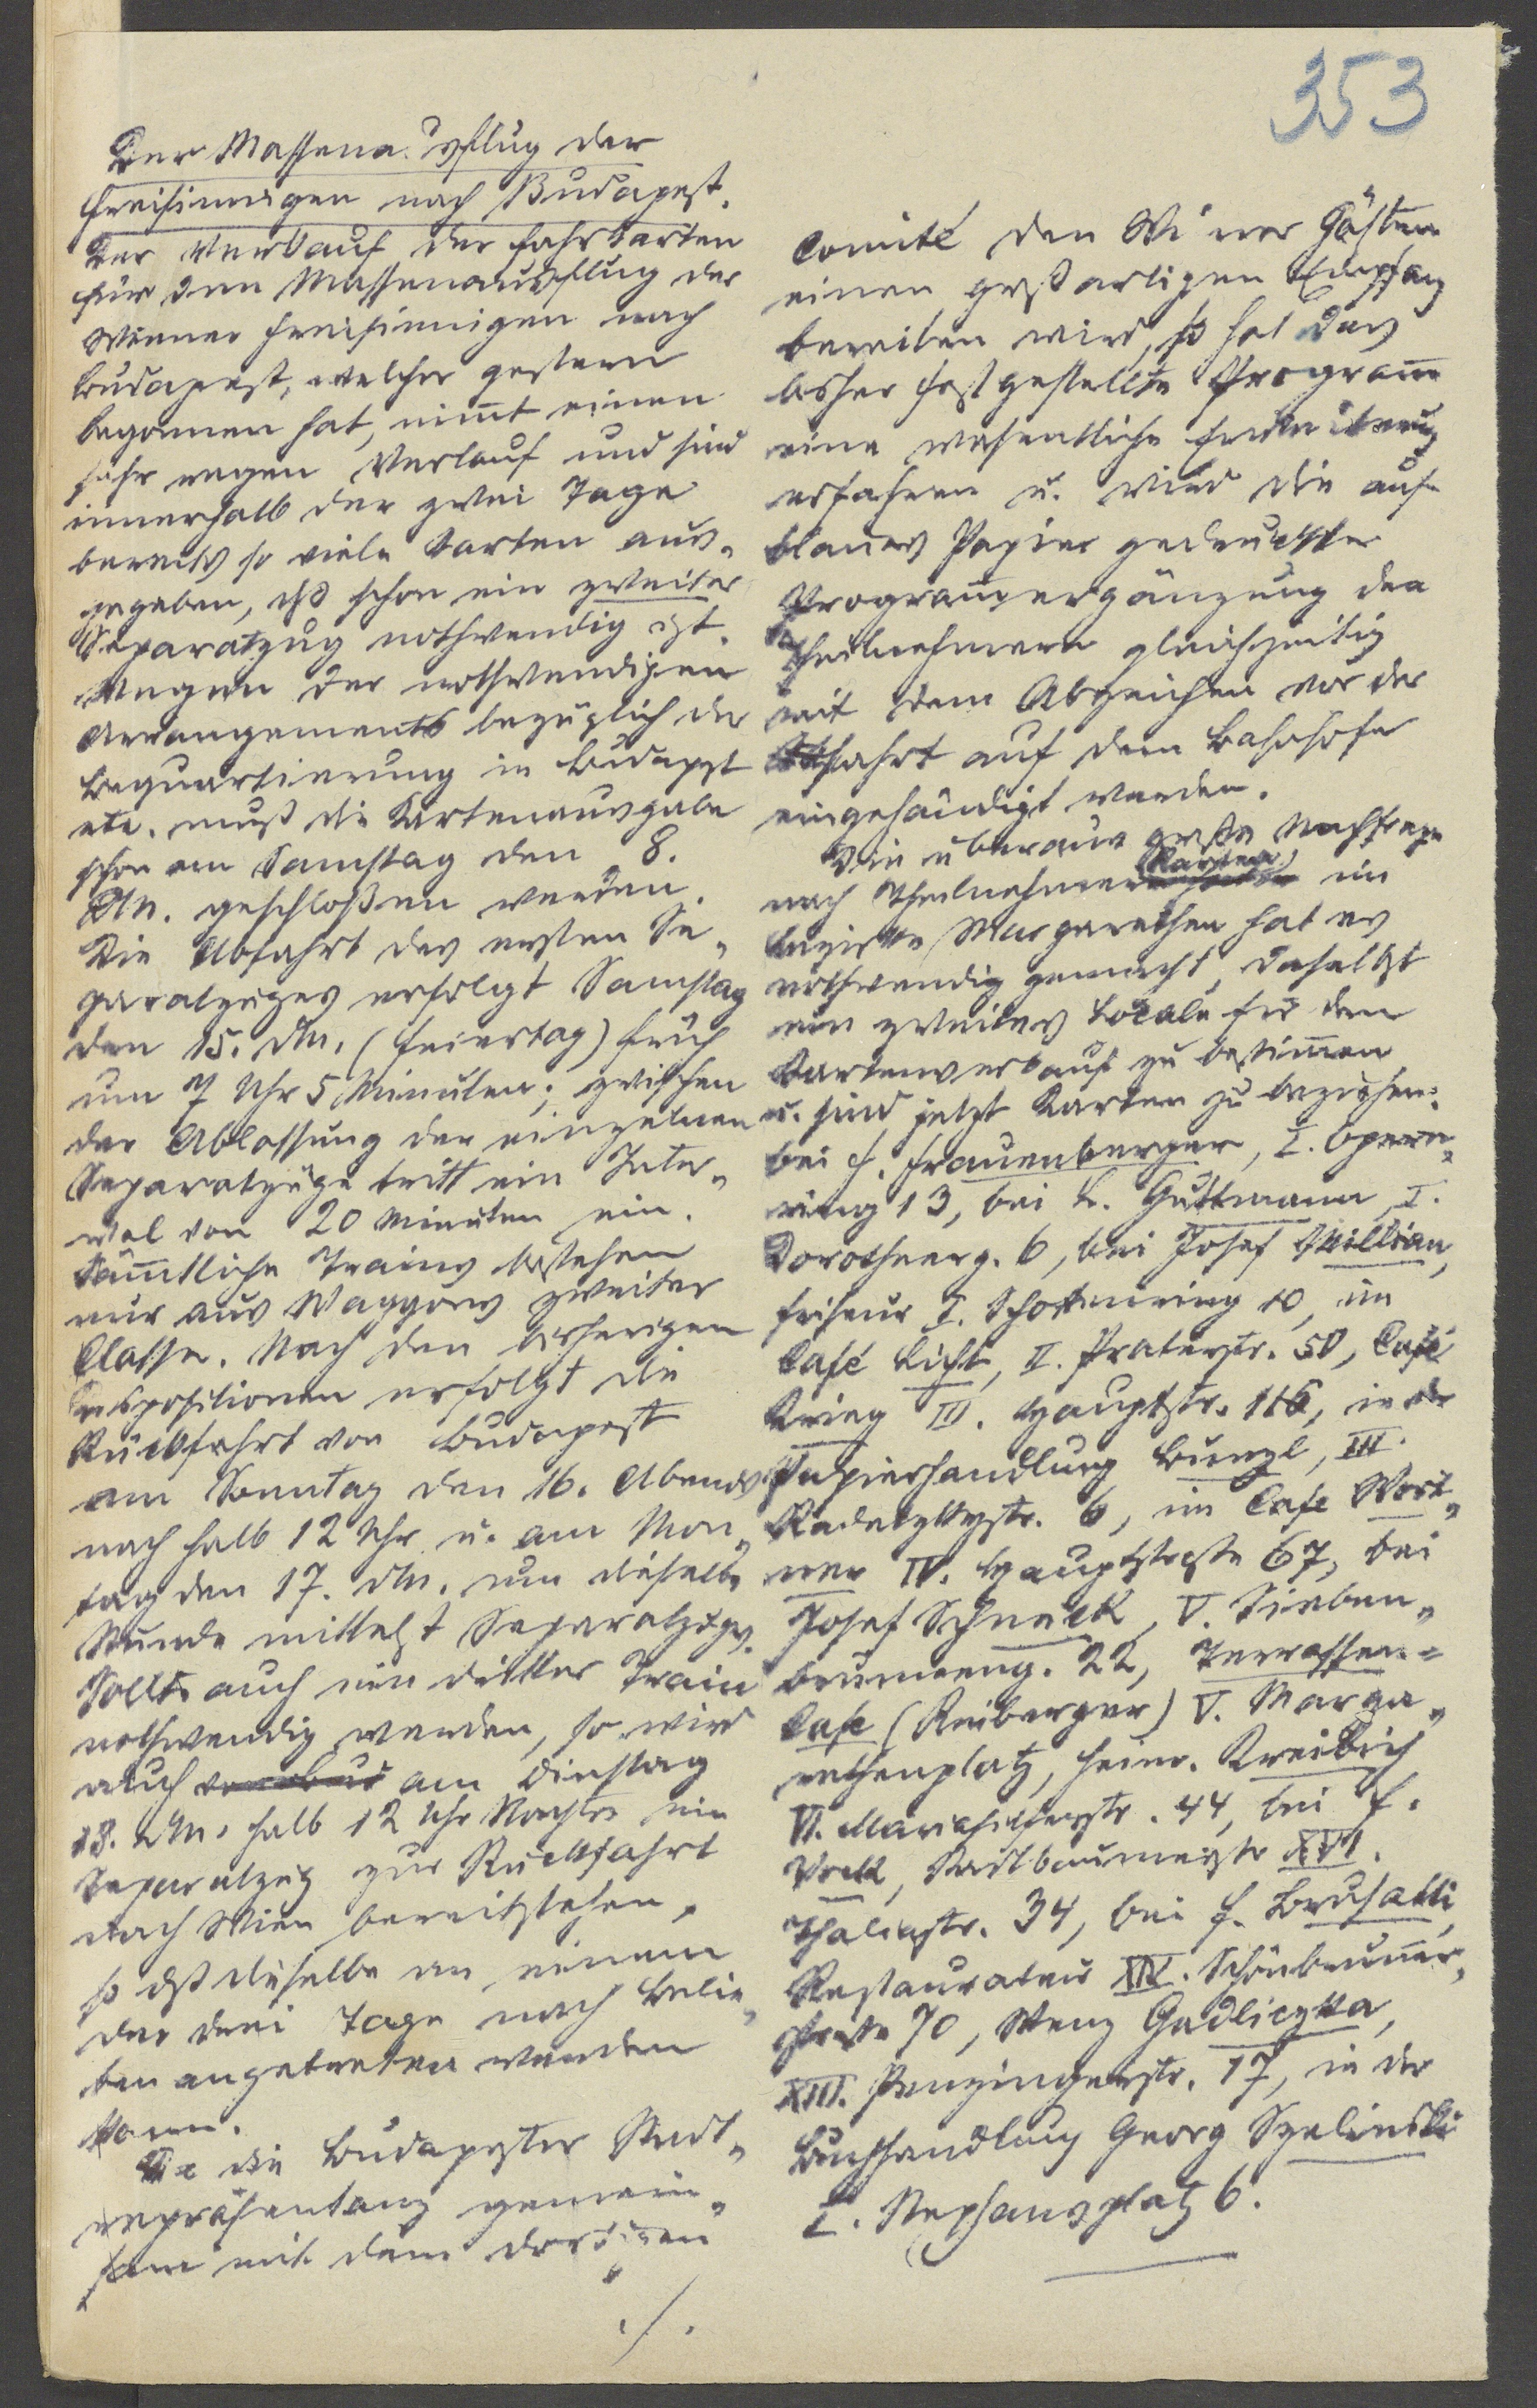 353
Der Massenausflug der
Freisinnigen nach Budapest.
Der Verkauf der Fahrkarten
für den Massenausflug der
Wiener Freisinnigen nach
Budapest, welcher gestern
begonnen hat, nim̄t einen
sehr regen Verlauf und sind
innerhalb der zwei Tage
bereits so viele Karten aus„
gegeben, dß schon ein zweiter
Separatzug nothwendig ist.
Wegen der nothwendigen
Arrangements bezüglich der
Bequartierung in Budapest
etc. muß die Kartenausgabe
schon am Samstag den 8.
dM. geschloßen werden.
Die Abfahrt des ersten Se„
paratzuges erfolgt Samstag
den 15. dM. (Feiertag) früh
um 7 Uhr 5 Minuten; zwischen
der Ablassung der einzelnen
Separatzüge tritt ein Inter„
val von 20 Minuten ein.
Säm̄tliche Trains bestehen
nur aus Waggons zweiter
Classe. Nach den bisherigen
Dispositionen erfolgt die
Rückfahrt von Budapest
am Sonntag den 16. Abends
nach halb 12 Uhr u. am Mon„
tag den 17. dM. um dieselbe
Stunde mittelst Separatzugs.
Sollte auch ein dritter Train
nothwendig werden, so wird
auch am Dinstag
18. dM. halb 12 Uhr Nachts ein
Separatzug zur Rückfahrt
nach Wien bereitstehen,
so dß dieselbe an einem
der drei Tage nach Belie„
ben angetreten werden
kann.
Da die Budapester Stadt„
repräsentanz gemein„
sam mit dem dortigen
./.
Comité den Wiener Gästen
einen großartigen Empfang
bereiten wird, so hat das
bisher festgestellte Program̄
eine wesentliche Erweiterung
erfahren u. wird die auf
blaues Papier gedruckte
Program̄ergänzung den
Theilnehmern gleichzeitig
mit dem Abzeichen vor der
Abfahrt auf dem Bahnhofe
eingehändigt werden.
Die überaus große Nachfrage
nach Theilnehmerkarten im
Bezirke Margarethen hat es
nothwendig gemacht, daselbst
ein zweites Locale für den
Kartenverkauf zu bestim̄en
u. sind jetzt Karten zu beziehen:
bei F. Frauenberger, I. Opern„
ring 13, bei L. Guttmann, I.
Dorotheerg. 6, bei Josef Killian,
Friseur I. Schottenring 10, im
Café Licht, II. Praterstr. 50, Café
Krieg III. Hauptstr. 116, in der
Papierhandlung Bunzl, III.
Radetzkystr. 6, im Cafe Wort„
ner IV. Hauptstraße 67, bei
Josef Schneck, V. Sieben„
brunneng. 22, Terrassen=
Cafe (Reiberger) V. Marga„
rethenplatz, Heinr. Kreibich
VI. Mariahilferstr. 44, bei F.
Vock, Stadtbaumeister XVI.
Thaliastr. 34, bei F. Brusatti,
Restaurateur XIV. Schönbrun̄er„
straße 70, Wenz Gadliczka,
XIII. Penzingerstr. 17, in der
Buchhandlung Georg Szelinski
I. Stephansplatz 6.